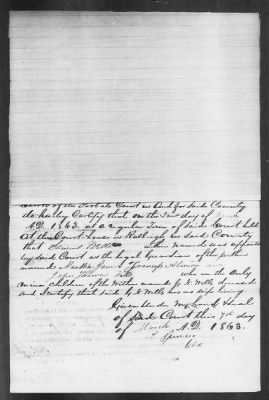 of the Probate Court in and for said County
do hereby Certify that on the 3rd day of
A.D. 1863. at a regular Term of said Court held
at the Court House in Raleigh in said County
that Thomas Wills within named was appointed
by said Court as the Legal Guardian of the within
named Martha Jane, Francis
who are the Only
minor children of the within named G. W. Wells deceased
and I certify that said G. W. Wells has no wife living.
Given Under My hand & Seal
of said Court this 7th day
of March A.D. 1863.
Clk